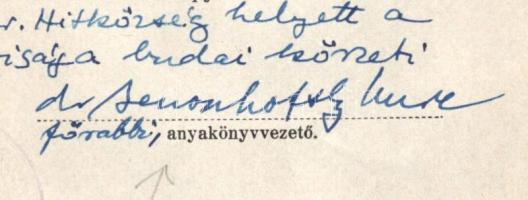 r. Hitközség helyett a
isága budai körzeti
dr Benoschofsky Imre
főrabbi, anyakönyvvezető.